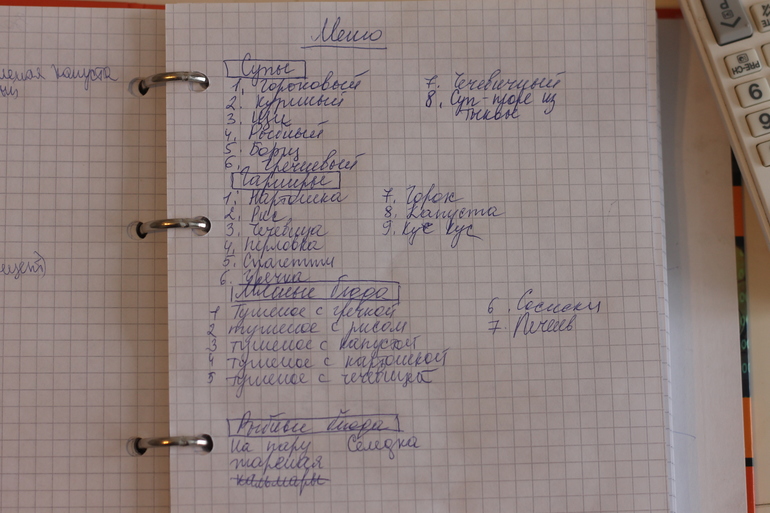 Меню
Супы
1. Гороховый
2. Куриный
3. Щи
4. Рыбный
5. Борщ
6. Гречневый
7. Чечевичный
8. Суп-пюре из
тыквы
Гарниры
1. Картошка
2. Рис
3. Чечевица
4. Перловка
5. Спагетти
6. Гречка
7. Горох
8. Капуста
9. Кус Кус
Мясные блюда
1 Тушеное с гречкой
2 тушеное с рисом
3 тушеное с капустой
4 тушеное с картошкой
5 тушеное с чечевицей
6. Сосиски
7. Печень
Рыбные блюда
На пару Селедка
жареная
кальмары
капуста
PRE-CH
9
6